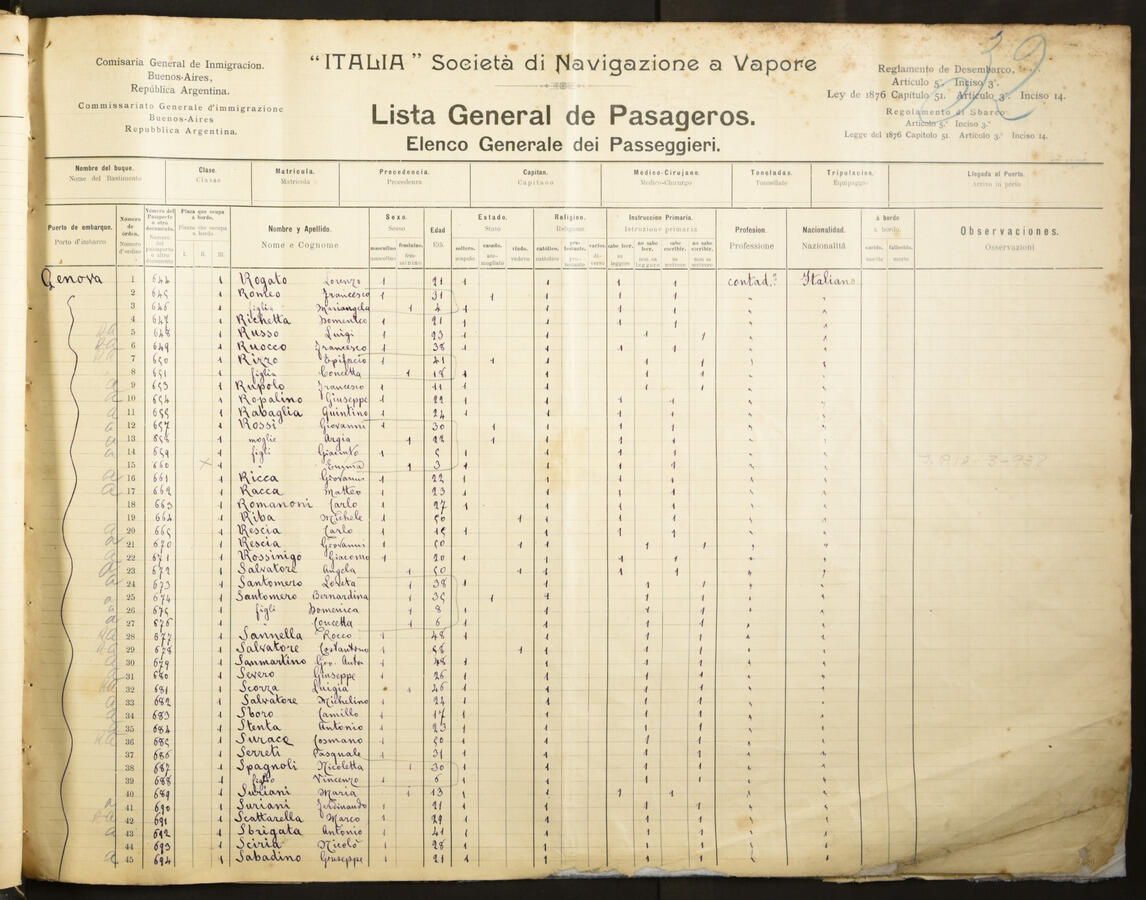 Comisaria General de Inmigracion.
Buenos-Aires,
República Argentina.
Commissariato Generale d'immigrazione
Buenos-Aires
Repubblica Argentina.
"ITALIA" Società di Navigazione a Vapore
Lista General de Pasageros.
Elenco Generale dei Passeggieri.
39
Reglamento de Desembarco,
Articulo 5º Inciso 3º
Ley de 1876 Capítulo 51. Artículo 3º Inciso 14.
Regolamento di Sbarco
Articolo 5.º Inciso 3.º
Legge del 1876 Capitolo 51. Articolo 3.º Inciso 14.
Nombre del buque. Clase. Matricula. Procedencia. Capitan. Medico-Cirujano. Toneladas. Tripulacion. Llegada al Puerto.
Nome del Bastimento Classe Matricola Precedenza Capitano Medico-Chirurgo Tonnellate Equipaggio Arrivo in porto
Puerto de embarque. Porto d'imbarco
Número de órden. Numero d'ordine
Número del Pasaporte o otro documento Numero del passaporto o altro documento
Plaza que ocupa á bordo. Piazza che occupa a bordo I. II. III.
Nombre y Apellido. Nome e Cognome
Sexo. Sesso masculino femenino. maschino femminino
Edad Età
Estado. Stato soltero. casado. viudo. scapolo ammogliato vedovo
Religion. Religione católico. protestante. varios. cattolico protestante diversi
Instruccion Primaria. Istruzione primaria sabe leer. no sabe leer. sabe escribir. no sabe escribir. sa leggere non sa leggere sa scrivere non sa scrivere
Profesion. Professione
Nacionalidad. Nazionalità
á bordo a bordo nacido. fallecido. nascite morto
Observaciones. Osservazioni
Genova 1 644 1 Rogato Lorenzo 1 21 1 1 1 1 contad.º Italiano
2 645 1 Romeo Francesco 1 31 1 1 1 1 " "
3 646 1 figlia Mariangela 1 4 1 1 1 1 " "
4 647 1 Richetta Domenico 1 21 1 1 1 1 " "
5 648 1 Russo Luigi 1 23 1 1 1 1 " "
6 649 1 Ruocco Francesco 1 38 1 1 1 1 " "
7 650 1 Rizzo Epifacio 1 41 1 1 1 1 " "
8 651 1 figlia Concetta 1 18 1 1 1 1 " "
9 653 1 Rupolo Francesco 1 11 1 1 1 1 " "
10 654 1 Ropalino Giuseppe 1 22 1 1 1 1 " "
11 655 1 Rabaglia Quintino 1 24 1 1 1 1 " "
12 657 1 Rossi Giovanni 1 30 1 1 1 1 " "
13 658 1 moglie Argia 1 22 1 1 1 1 " "
14 659 1 figli Giacinto 1 5 1 1 1 1 " "
15 660 1 " Emma 1 3 1 1 1 1 " "
16 661 1 Ricca Giovanni 1 22 1 1 1 1 " "
17 662 1 Racca Matteo 1 23 1 1 1 1 " "
18 663 1 Romanoni Carlo 1 27 1 1 1 1 " "
19 664 1 Riba Michele 1 50 1 1 1 1 " "
20 665 1 Rescia Carlo 1 15 1 1 1 1 " "
21 670 1 Rescia Giovanni 1 50 1 1 1 1 " "
22 671 1 Rossinigo Giacomo 1 20 1 1 1 1 " "
23 672 1 Salvatore Angela 1 50 1 1 1 1 " "
24 673 1 Santomero Loreta 1 38 1 1 1 " "
25 674 1 Santomero Bernardina 1 35 1 1 1 1 " "
26 675 1 figli Domenica 1 8 1 1 1 1 " "
27 676 1 " Concetta 1 6 1 1 1 1 " "
28 677 1 Sannella Rocco 1 48 1 1 1 1 " "
29 678 1 Salvatore Costantino 1 58 1 1 1 1 " "
30 679 1 Sanmartino Gov. Anto 1 48 1 1 1 1 " "
31 680 1 Severo Giuseppe 1 26 1 1 1 1 " "
32 681 1 Scorza Luigia 1 46 1 1 1 1 " "
33 682 1 Salvatore Michelino 1 24 1 1 1 1 " "
34 683 1 Sboro Camillo 1 17 1 1 1 1 " "
35 684 1 Stenta Antonio 1 23 1 1 1 1 " "
36 685 1 Surace Cosmano 1 50 1 1 1 1 " "
37 686 1 Serreti Pasquale 1 31 1 1 1 1 " "
38 687 1 Spagnoli Nicoletta 1 30 1 1 1 " "
39 688 1 figlio Vincenzo 1 6 1 1 1 1 " "
40 689 1 Suriani Maria 1 13 1 1 1 1 " "
41 690 1 Suriani Ferdinando 1 21 1 1 1 1 " "
42 691 1 Scattarella Marco 1 29 1 1 1 1 " "
43 692 1 Sbrigata Antonio 1 41 1 1 1 1 " "
44 693 1 Sciria Nicolò 1 28 1 1 1 1 " "
45 694 1 Sabadino Giuseppe 1 21 1 1 1 1 " "